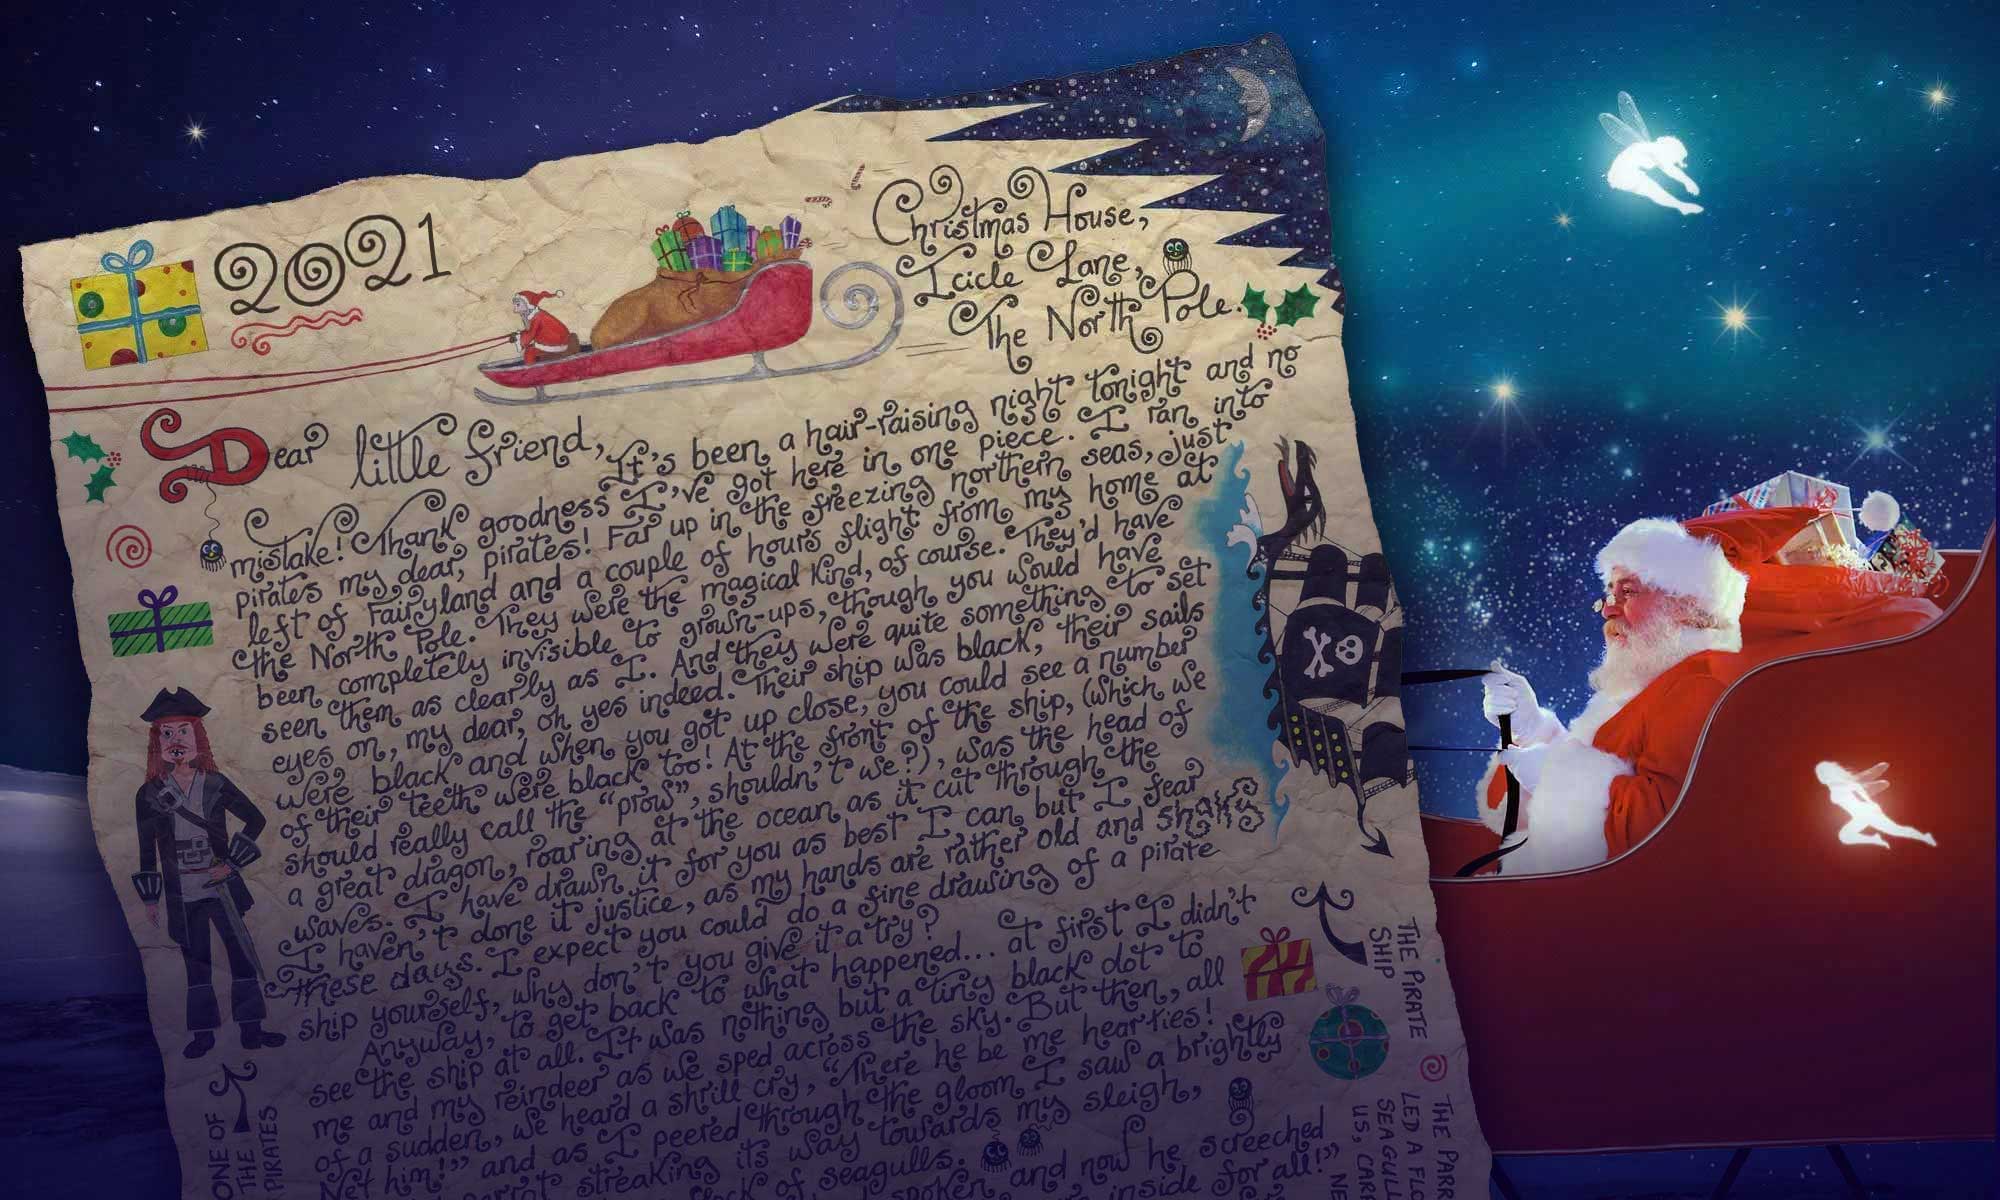 2021
Christmas House,
Icicle Lane,
The North Pole.
Dear little friend, It's been a hair-raising night tonight and no
mistake! Thank goodness I've got here in one piece. I ran into
pirates my dear, pirates! Far up in the freezing northern seas, just
left of Fairyland and a couple of hours flight from my home at
the North Pole. They were the magical kind, of course. They'd have
been completely invisible to grown-ups, though you would have
seen them as clearly as I. And they were quite something to set
eyes on, my dear, oh yes indeed. Their ship was black, their sails
were black and when you got up close, you could see a number
of their teeth were black too! At the front of the ship, (which we
should really call the "prow", shouldn't we?), was the head of
a great dragon, roaring at the ocean as it cut through the
waves. I have drawn it for you as best I can but I fear
I haven't done it justice, as my hands are rather old and shaky
these days. I expect you could do a fine drawing of a pirate
ship yourself, why don't you give it a try?
Anyway, to get back to what happened... at first I didn't
see the ship at all. It was nothing but a tiny black dot to
me and my reindeer as we sped across the sky. But then, all
of a sudden, we heard a shrill cry, "There he be me hearties!
Net him!" and as I peered through the gloom I saw a brightly
streaking its way towards my sleigh,
of seagulls.
spoken and now he screeched
inside for all!"
ONE OF
THE
PIRATES
THE PIRATE
SHIP
THE
LED A
US,